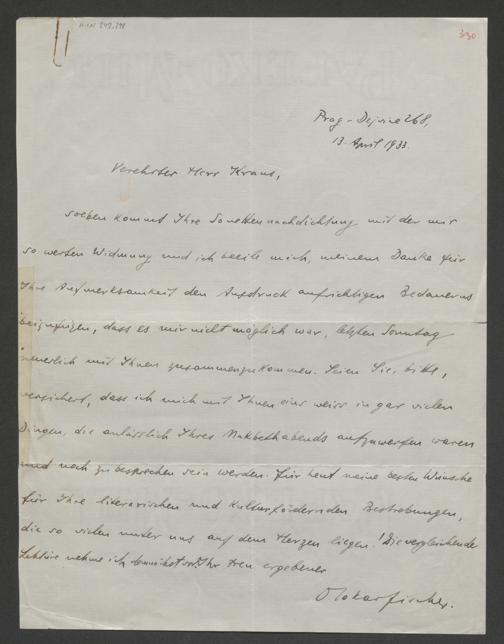 H.I.N. 242.298
330
Prag-Dejvice 268,
13. April 1933.
Verehrter Herr Kraus,
soeben kommt Ihre Sonettennachdichtung mit der mir
so werten Widmung und ich beeile mich, meinem Danke für
Ihre Aufmerksamkeit den Ausdruck aufrichtigen Bedauerns
beizufügen, dass es mir nicht möglich war, letzten Sonntag
neuerlich mit Ihnen zusammenzukommen. Seien Sie, bitte,
versichert, dass ich mich mit Ihnen eins weiss in gar vielen
Dingen, die anlässlich Ihres Makbethabends aufzuwerfen waren
und noch zu besprechen sein werden. Für heut meine besten Wünsche
für Ihre literarischen und kulturfördernden Bestrebungen,
die so vielen unter uns auf dem Herzen liegen! Die vergleichende
Lektüre nehme ich Ihr treu ergebener
Otokar Fischer.